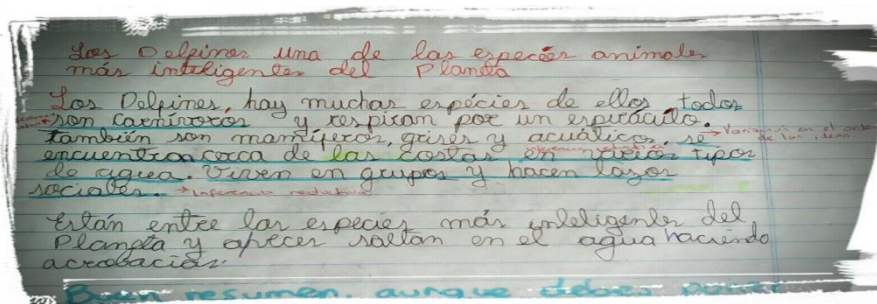 Los Delfines una de las especies animales
más inteligentes del Planeta
Los Delfines, hay muchas espécies de ellos, todos
son carnívoros y respiran por un espiráculo.
también son mamíferos, grises y acuáticos, se
encuentran cerca de las costas en varios tipos
de agua. Viven en grupos y hacen lazos
sociales.
Están entre las especies más inteligentes del
Planeta y aveces saltan en el agua haciendo
acrobacias.
Buen resumen, aunque debes poner